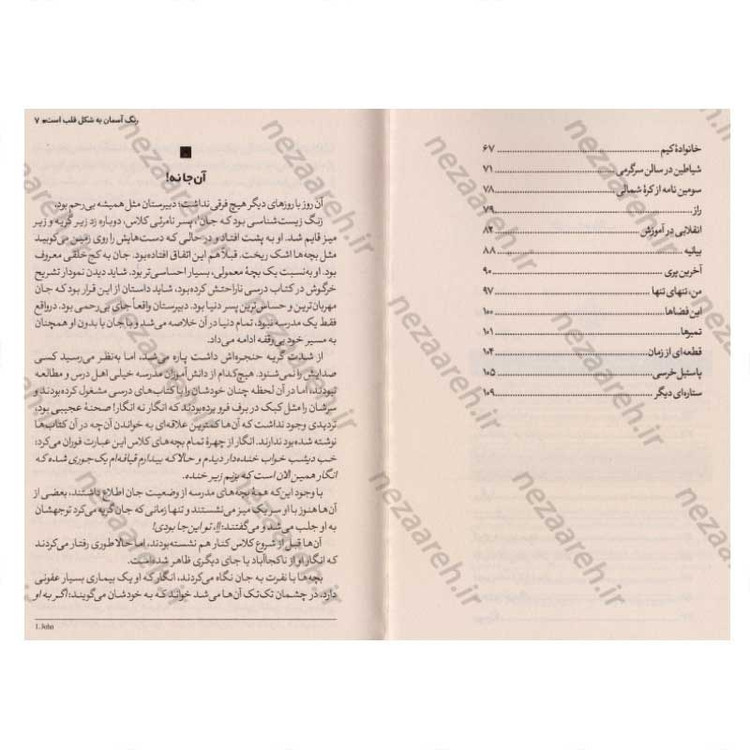 خانوادهٔ کیم ........ ۶۷
شیاطین در سالن سرگرمی ........ ۷۱
سومین نامه از کرهٔ شمالی ........ ۷۸
راز ........ ۷۹
انقلابی در آموزش ........ ۸۲
بیانیه ........ ۸۸
آخرین پری ........ ۹۰
من، تنهای تنها ........ ۹۷
این فضاها ........ ۱۰۰
تمبرها ........ ۱۰۱
قطعه‌ای از زمان ........ ۱۰۴
پاستیل خرسی ........ ۱۰۵
ستاره‌ای دیگر ........ ۱۰۹
رنگ آسمان به شکل قلب است • ۷
آن‌جا نه!
آن روز با روزهای دیگر هیچ فرقی نداشت؛ دبیرستان مثل همیشه بی‌رحم بود.
زنگ زیست‌شناسی بود که جان¹، پسر نامرئی کلاس، دوباره زد زیر گریه و زیر
میز قایم شد. او به پشت افتاد و در حالی که دست‌هایش را روی زمین می‌کوبید
مثل بچه‌ها اشک ریخت. قبلاً هم این اتفاق افتاده بود. جان به کج خلقی معروف
بود. او به‌نسبت یک بچهٔ معمولی، بسیار احساسی‌تر بود. شاید دیدن نمودار تشریح
خرگوش در کتاب درسی ناراحتش کرده بود، شاید داستان از این قرار بود که جان
مهربان‌ترین و حساس‌ترین پسر دنیا بود. دبیرستان واقعاً جای بی‌رحمی بود. درواقع
فقط یک مدرسه نبود، تمام دنیا در آن خلاصه می‌شد و با جان یا بدون او همچنان
به مسیر خود بی‌وقفه ادامه می‌داد.
از شدت گریه حنجره‌اش داشت پاره می‌شد، اما به‌نظر می‌رسید کسی
صدایش را نمی‌شنود. هیچ‌کدام از دانش‌آموزان مدرسه خیلی اهل درس و مطالعه
نبودند، اما در آن لحظه چنان خودشان را با کتاب‌های درسی مشغول کرده بودند و
سرشان را مثل کبک در برف فرو برده بودند که انگار نه انگار! صحنهٔ عجیبی بود،
تردیدی وجود نداشت که آن‌ها کمترین علاقه‌ای به خواندن آن‌چه در آن کتاب‌ها
نوشته شده بود ندارند. انگار از چهرهٔ تمام بچه‌های کلاس این عبارت فوران می‌کرد:
خب دیشب خواب خنده‌دار دیدم و حالا که بیدارم قیافه‌ام یک‌جوری شده که
انگار همین الان است که بزنم زیر خنده.
با وجود این‌که همهٔ بچه‌های مدرسه از وضعیت جان اطلاع داشتند، بعضی از
آن‌ها هنوز با او سر یک میز می‌نشستند و تنها زمانی که جان گریه می‌کرد توجهشان
به او جلب می‌شد و می‌گفتند: اِ، تو این‌جا بودی!
آن‌ها قبل از شروع کلاس کنار هم نشسته بودند، اما حالا طوری رفتار می‌کردند
که انگار او از ناکجاآباد یا جای دیگری ظاهر شده است.
بچه‌ها با نفرت به جان نگاه می‌کردند، انگار که او یک بیماری بسیار عفونی
دارد. در چشمان تک‌تک آن‌ها می‌شد خواند که به خودشان می‌گویند: اگر به او
1. John
nezaareh.ir